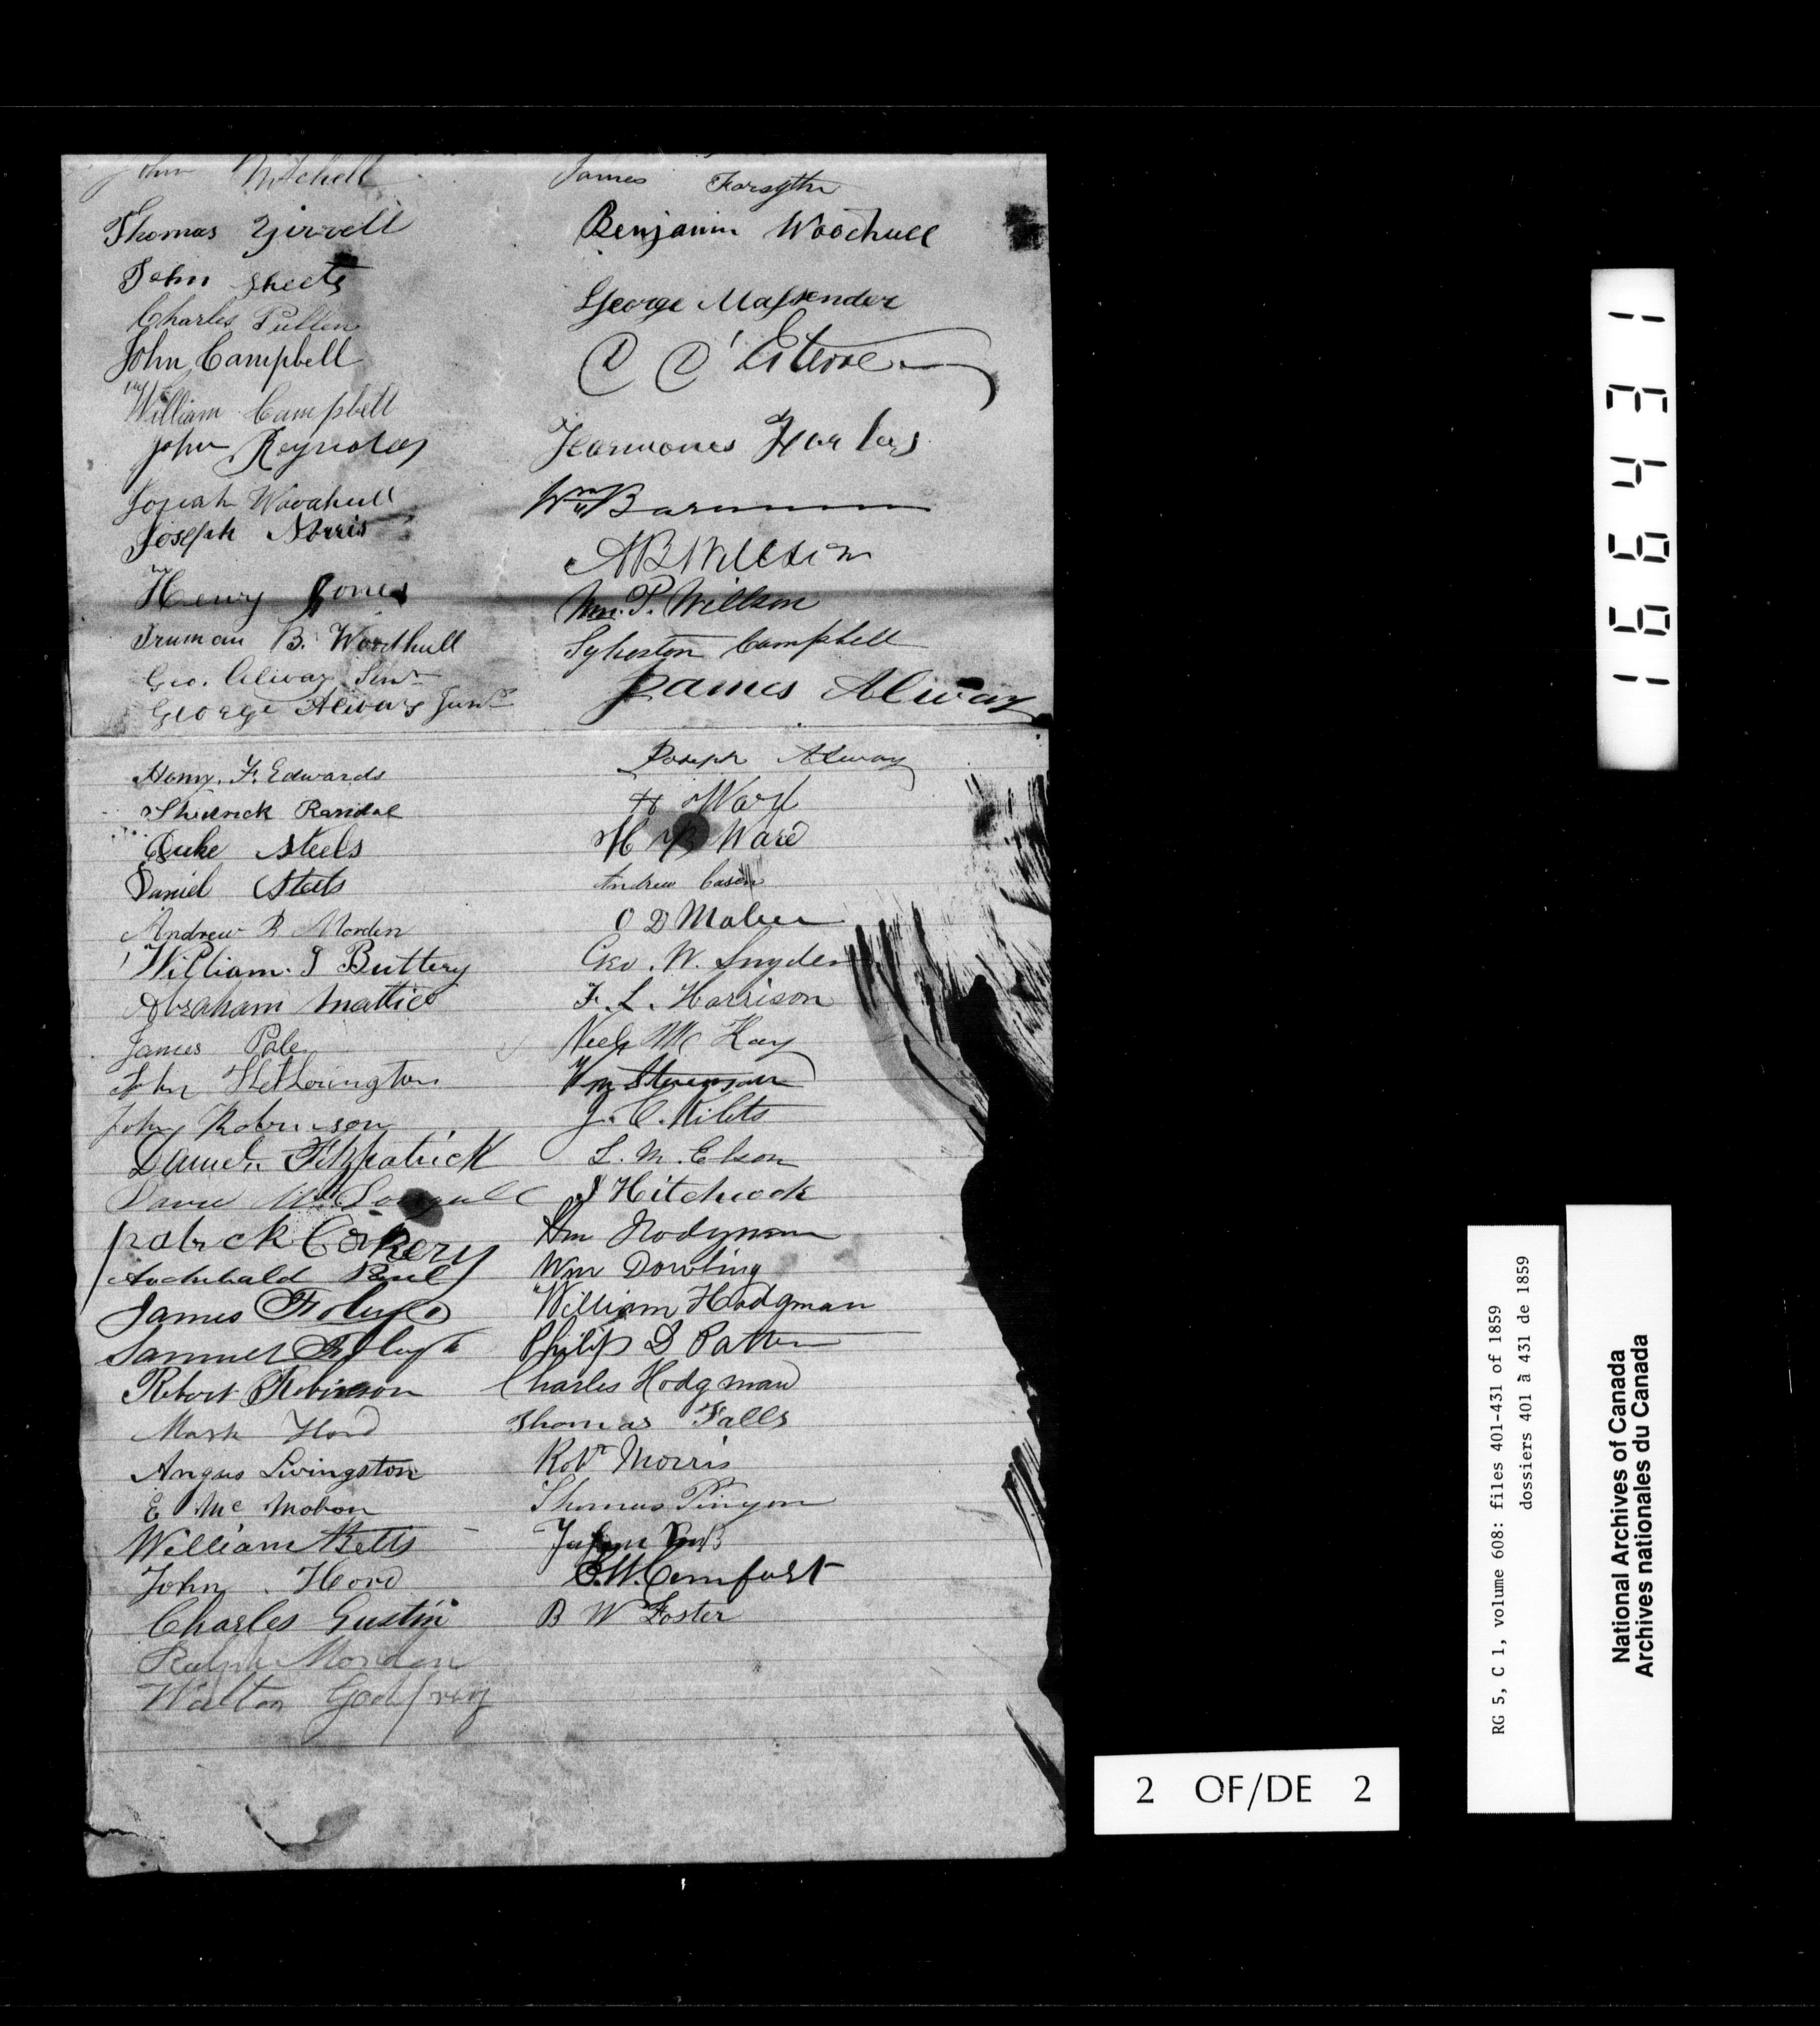 John Mitchell
Thomas Yirrell
John Sheets
Charles Pullen
John Campbell
William Campbell
John Reynolds
Josiah Woodhull
Joseph Norris
Henry Jones
Truman B. Woodhull
Geo. Alway Senr
George Alway Junr
Henry. F. Edwards
Randal
Duke Steels
Daniel Steets
Andrew R Morden
William. J Buttery
Abraham Mattice
James Pole
John Hetherington
John Robinson
Daniel Fitzpatrick
Patrick Corkery
Archibald
James
Samuel
Robert Robinson
Mark Hord
Angus Livingston
E Mc Mahon
William Betts
John Hord
Charles Gustin
Ralph Morden
Walton Godfrey
James Forsythe
Benjamin Woodhull
George
Harmones
Wm
A B Willson
Wm. P. Willson
Sylveston Campbell
James Alway
Joseph Alway
H B Ware
Andrew
O D
Geo. W. Snyder
F. L. Harrison
Mc Kay
Wm Stevenson
J. C. Kilets
L. M. Elson
J Hitchcock
Wm Hodgman
Wm Dowling
William Hodgman
Philip D Patten
Charles Hodgman
Thomas Falls
Robt Morris
Thomas Pinyon
E.W. Comfort
B W Foster
166431
2 OF/DE 2
RG 5, C 1, volume 608: files 401-431 of 1859
dossiers 401 à 431 de 1859
National Archives of Canada
Archives nationales du Canada